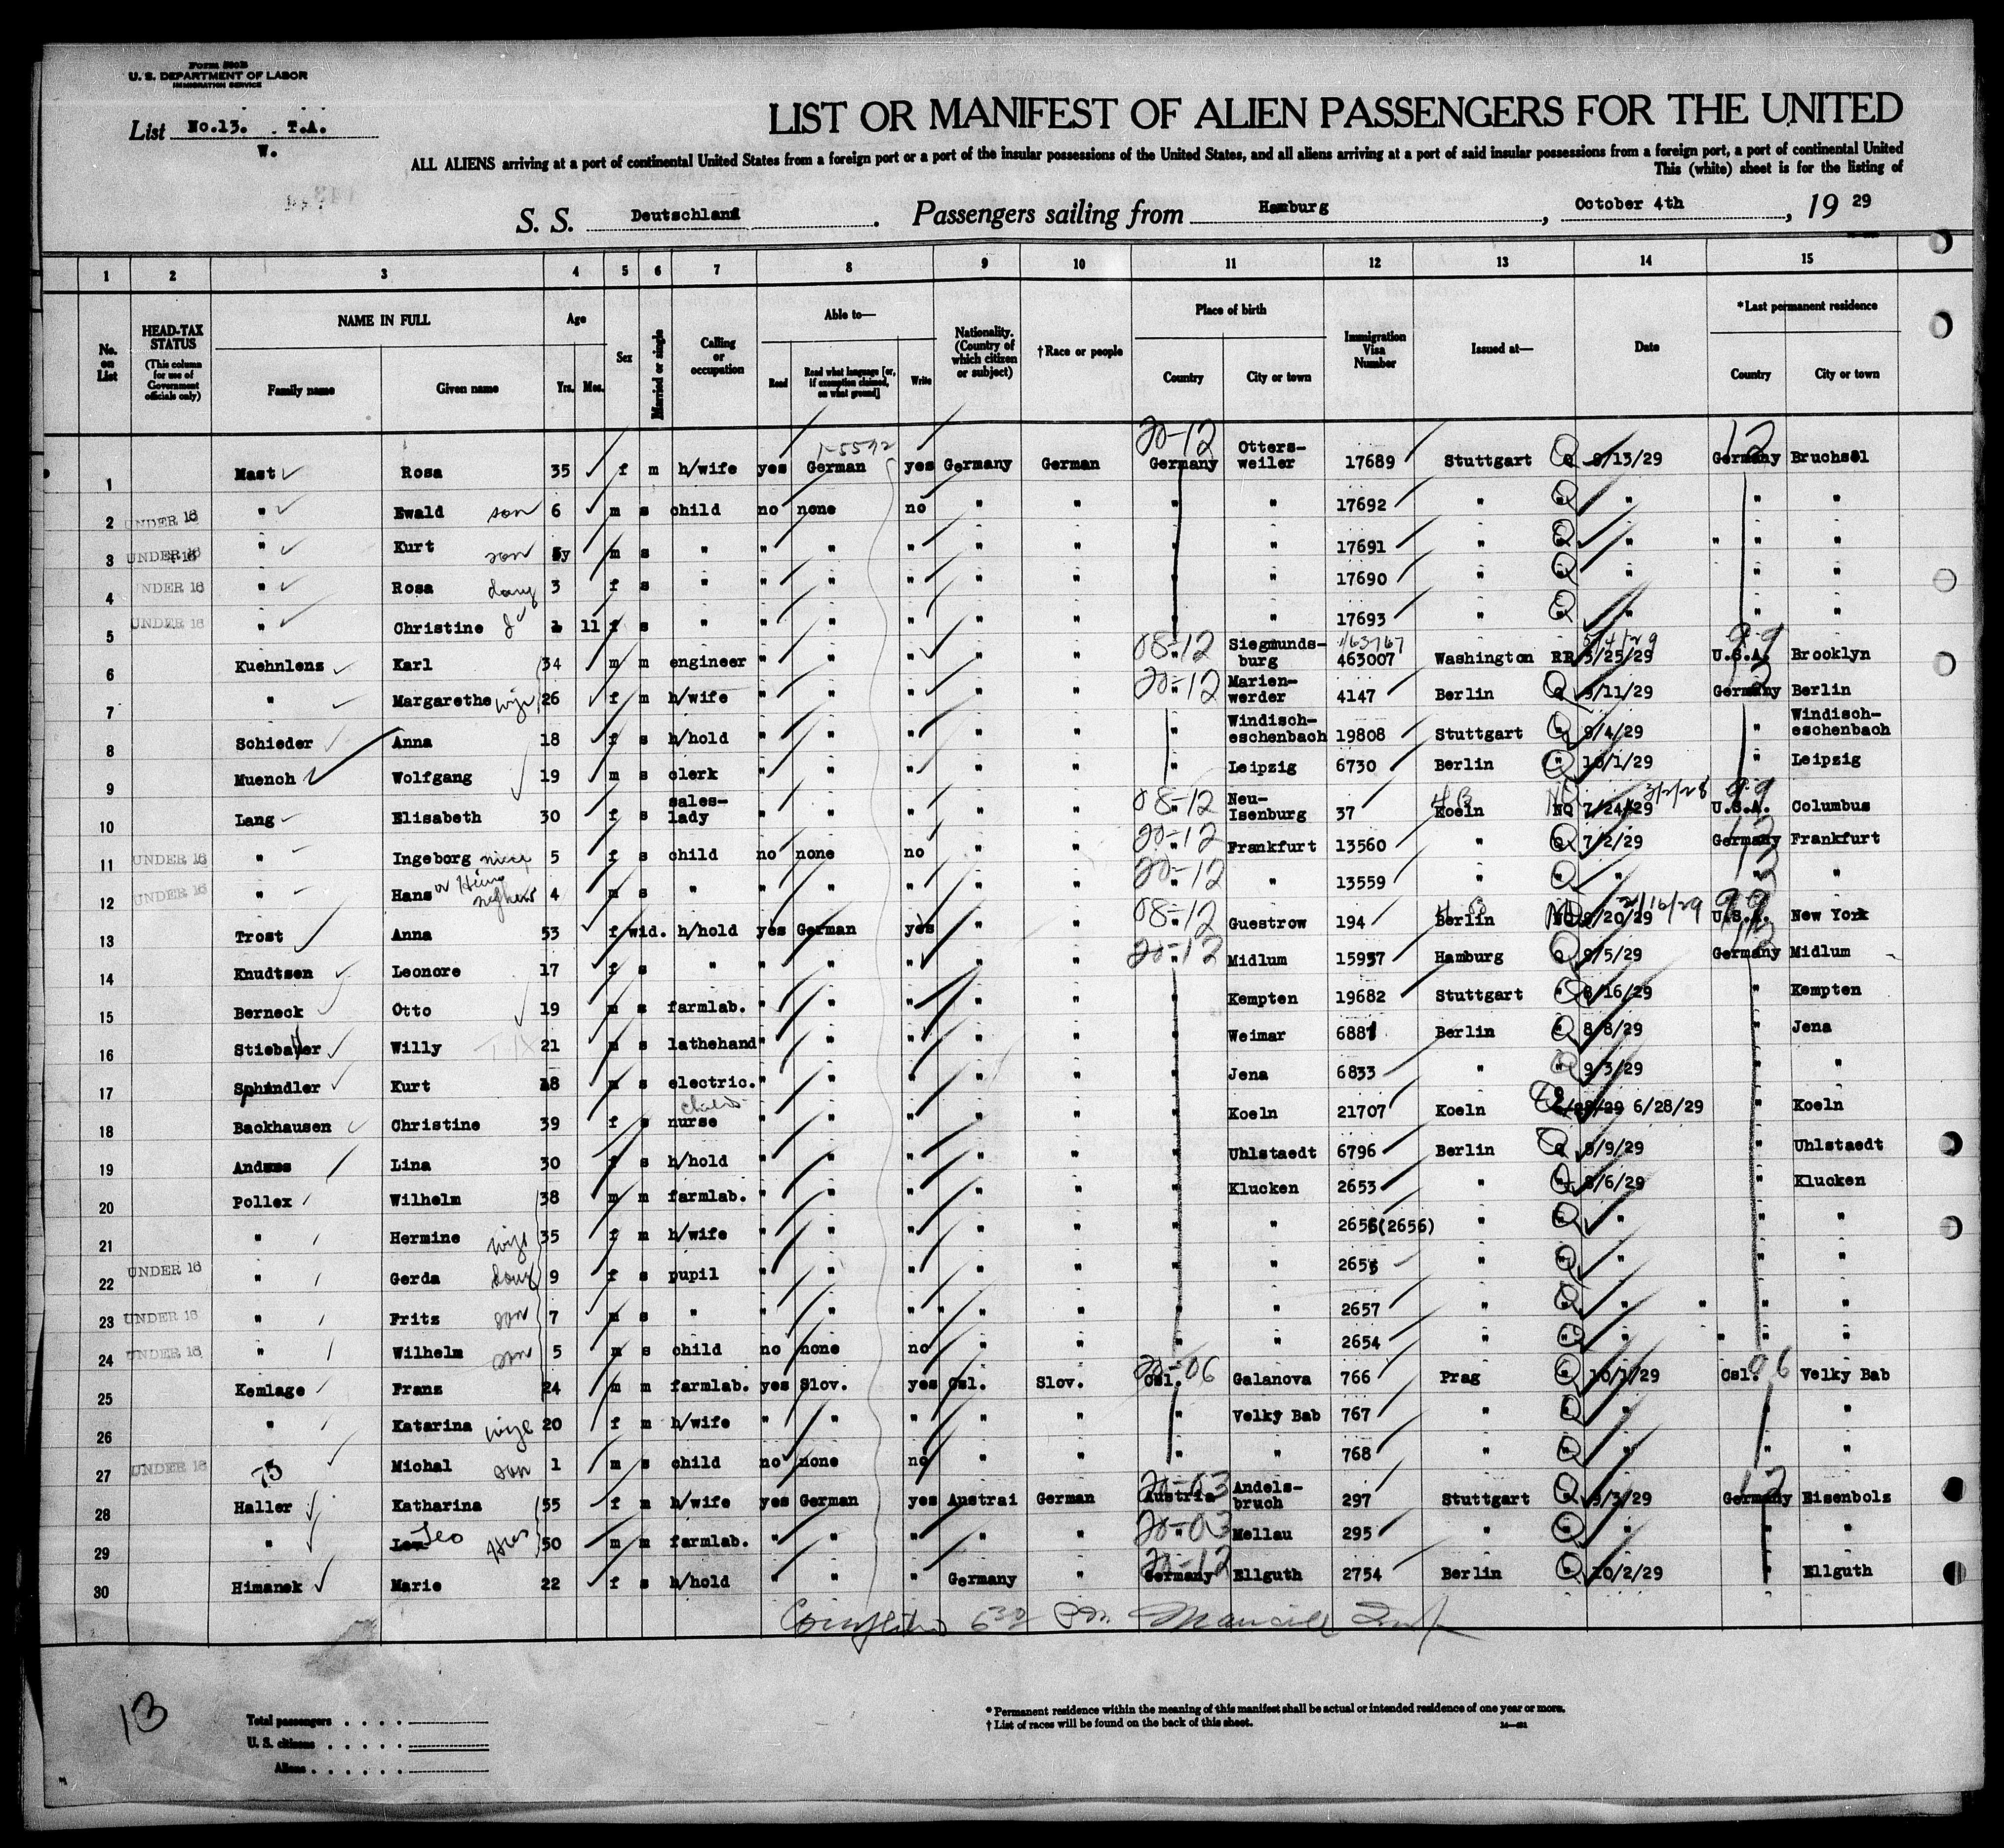 Form 500B
U. S. DEPARTMENT OF LABOR
IMMIGRATION SERVICE
List No.13. T.A.
W.
LIST OR MANIFEST OF ALIEN PASSENGERS FOR THE UNITED
ALL ALIENS arriving at a port of continental United States from a foreign port or a port of the insular possessions of the United States, and all aliens arriving at a port of said insular possessions from a foreign port, a port of continental United
This (white) sheet is for the listing of
S. S. Deutschland. Passengers sailing from Hamburg, October 4th, 19 29
1 2 3 4 5 6 7 8 9 10 11 12 13 14 15
No. on List
HEAD-TAX STATUS (This column for use of Government officials only)
NAME IN FULL Family name Given name
Age Yrs. Mos.
Sex
Married or single
Calling or occupation
Able to— Read Read what language [or, if exemption claimed, on what ground] Write
Nationality. (Country of which citizen or subject)
†Race or people
Place of birth Country City or town
Immigration Visa Number
Issued at—
Date
*Last permanent residence Country City or town
1 Mast Rosa 35 f m h/wife yes German 1-5592 yes Germany German 20-12 Germany Otters-weiler 17689 Stuttgart Q 9/13/29 12 Germany Bruchsal
2 UNDER 16 " Ewald son 6 m s child no none no " " " " 17692 " " " " "
3 UNDER 16 " Kurt son 5y m s " " " " " " " " 17691 " " " " "
4 UNDER 16 " Rosa daug 3 f s " " " " " " " " 17690 " " " " "
5 UNDER 16 " Christine d 1 11 f s " " " " " " " " 17693 " " " " "
6 Kuehnlens Karl 34 m m engineer " " " " " 08-12 " Siegmunds-burg 463007 Washington RP 5/25/29 99 U.S.A. Brooklyn
7 " Margarethe wife 26 f m h/wife " " " " " 20-12 " Marien-werder 4147 Berlin Q 9/11/29 12 Germany Berlin
8 Schieder Anna 18 f s h/hold " " " " " " Windisch-eschenbach 19808 Stuttgart Q 9/4/29 " Windisch-eschenbach
9 Muench Wolfgang 19 m s clerk " " " " " " Leipzig 6730 Berlin " 10/1/29 " Leipzig
10 Lang Elisabeth 30 f s sales-lady " " " " " 08-12 " Neu-Isenburg 37 Koeln NQ 7/24/29 3/2/28 99 U.S.A. Columbus
11 UNDER 16 " Ingeborg niece 5 f s child no none no " " 20-12 " Frankfurt 13560 " Q 7/2/29 12 Germany Frankfurt
12 UNDER 16 " Hans or Heinz nephew 4 m s " " " " " " 20-12 " " 13559 " " " 12 " "
13 Trost Anna 53 f wid. h/hold yes German yes " " 08-12 " Guestrow 194 Berlin NQ 9/20/29 2/16/29 99 U.S.A. New York
14 Knudtsen Leonore 17 f s " " " " " " 20-12 " Midlum 15957 Hamburg Q 9/5/29 12 Germany Midlum
15 Berneck Otto 19 m s farmlab. " " " " " " Kempten 19682 Stuttgart " 8/16/29 " Kempten
16 Stieballer Willy 21 m s lathehand " " " " " " Weimar 6881 Berlin " 8/8/29 " Jena
17 Sphindler Kurt 18 m s electric. " " " " " " Jena 6833 " " 9/3/29 " "
18 Backhausen Christine 39 f s child nurse " " " " " " Koeln 21707 Koeln 6/28/29 6/28/29 " Koeln
19 Lina 30 f s h/hold " " " " " " Uhlstaedt 6796 Berlin Q 9/9/29 " Uhlstaedt
20 Pollex Wilhelm 38 m m farmlab. " " " " " " Klucken 2653 " " 8/6/29 " Klucken
21 " Hermine wife 35 f m h/wife " " " " " " " 2656(2656) " " " " "
22 UNDER 16 " Gerda daug 9 f s pupil " " " " " " " 2655 " " " " "
23 UNDER 16 " Fritz son 7 m s " " " " " " " " 2657 " " " " "
24 UNDER 16 " Wilhelm son 5 m s child no none no " " " " 2654 " " " " "
25 Kemlage Franz 24 m m farmlab. yes Slov. yes Csl. Slov. 20-06 Csl. Galanova 766 Prag " 10/1/29 06 Csl. Velky Bab
26 " Katarina wife 20 f m h/wife " " " " " " Velky Bab 767 " " " " "
27 UNDER 16 75 " Michal son 1 m s child no none no " " " " 768 " " " " "
28 Haller Katharina 55 f m h/wife yes German yes Austrai German 20-03 Austria Andels-bruch 297 Stuttgart " 9/3/29 12 Germany Eisenbolz
29 " Leo 50 m m farmlab. " " " " " 20-03 " Mellau 295 " " " " "
30 Himanek Marie 22 f s h/hold " " " Germany " 20-12 Germany Ellguth 2754 Berlin " 10/2/29 " Ellguth
13
Total passengers
U. S. citizens
Aliens
* Permanent residence within the meaning of this manifest shall be actual or intended residence of one year or more.
† List of races will be found on the back of this sheet.